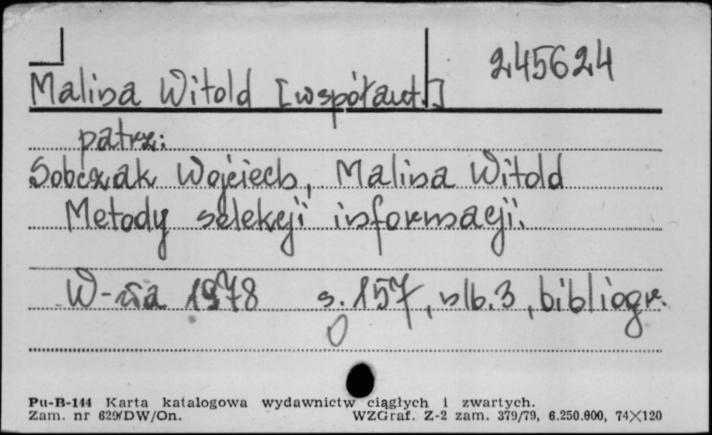 245624
Malina Witold [współaut.]
patrz:
Sobczak Wojciech, Malina Witold
Metody selekcji informacji.
W-wa 1978 s. 157, nlb. 3, bibliogr.
Pu-B-144 Karta katalogowa wydawnictw ciągłych i zwartych.
Zam. nr 629/DW/On. WZGraf. Z-2 zam. 379/79, 6.250.000, 74×120